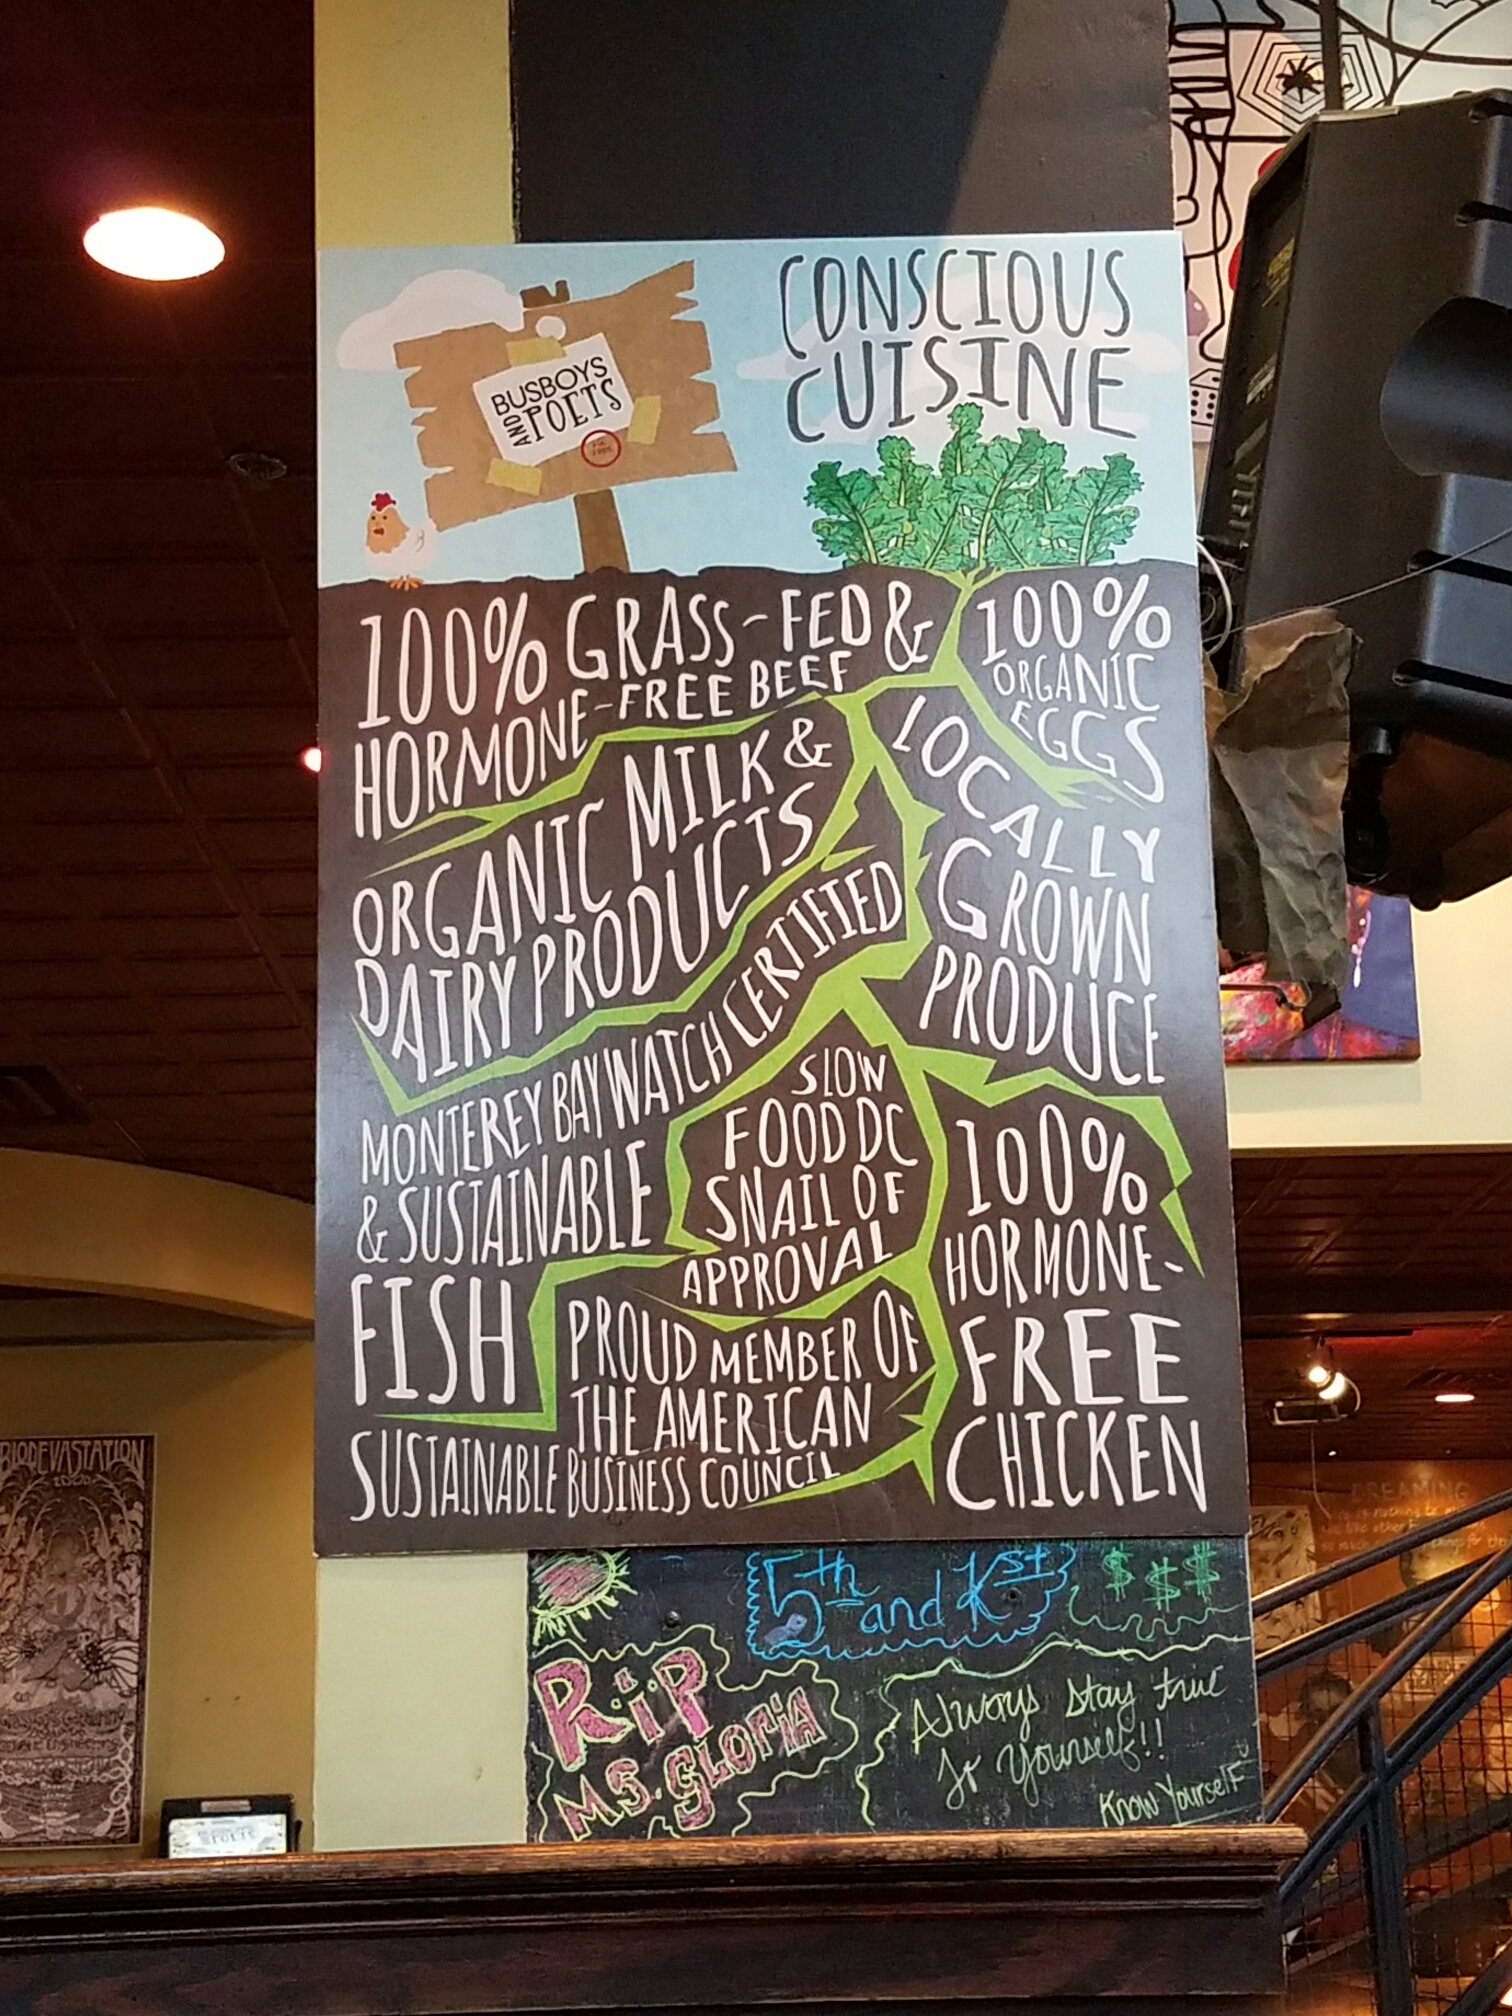 CONSCIOUS
CUISINE
BUSBOYS
AND POETS
100% GRASS-FED &
HORMONE-FREE BEEF
100%
ORGANIC
EGGS
ORGANIC MILK &
DAIRY PRODUCTS
LOCALLY
GROWN
PRODUCE
MONTEREY BAY WATCH CERTIFIED
& SUSTAINABLE
FISH
SLOW
FOOD DC
SNAIL OF
APPROVAL
100%
HORMONE-
FREE
CHICKEN
PROUD MEMBER OF
THE AMERICAN
SUSTAINABLE BUSINESS COUNCIL
5th and K St
$ $ $
RiP
MS. GLORIA
Always stay true
to Yourself!!
Know Yourself
BIODEVASTATION
2000
POETS
DREAMING